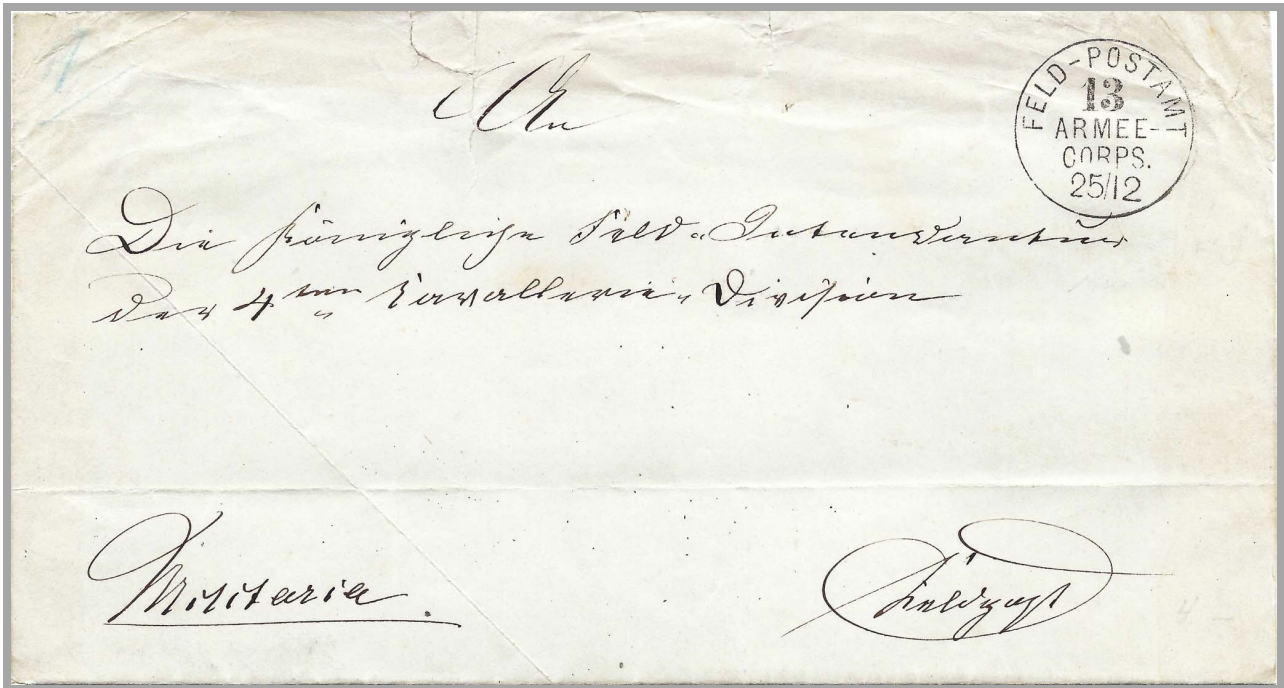 An
FELD-POSTAMT
13
ARMEE-
CORPS.
25/12
Die Königliche Feld-Intendantur
der 4ten Cavallerie-Division
Militaria.
Feldpost